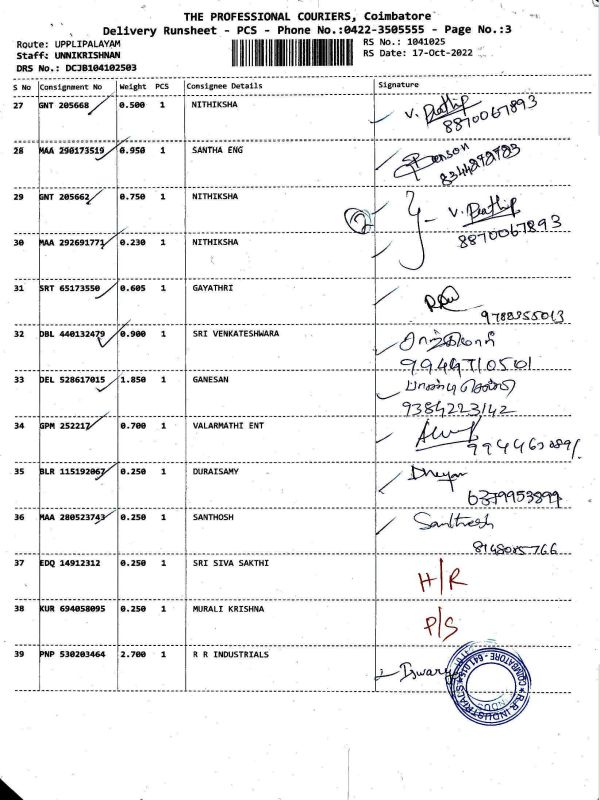 THE PROFESSIONAL COURIERS, Coimbatore
Delivery Runsheet - PCS - Phone No.:0422-3505555 - Page No.:3
Route: UPPLIPALAYAM RS No.: 1041025
Staff: UNNIKRISHNAN RS Date: 17-Oct-2022
DRS No.: DCJB104102503
S No Consignment No Weight PCS Consignee Details Signature
27 GNT 205668 0.500 1 NITHIKSHA V. Prathip
8870067893
28 MAA 290173519 0.950 1 SANTHA ENG
29 GNT 205662 0.750 1 NITHIKSHA 2 V. Prathip
8870067893
30 MAA 292691771 0.230 1 NITHIKSHA
31 SRT 65173550 0.605 1 GAYATHRI
9788355013
32 DBL 440132479 0.900 1 SRI VENKATESHWARA
9944710501
33 DEL 528617015 1.850 1 GANESAN
9384223142
34 GPM 252217 0.700 1 VALARMATHI ENT
35 BLR 115192067 0.250 1 DURAISAMY
6379953899
36 MAA 280523743 0.250 1 SANTHOSH Santhosh
8148085766
37 EDQ 14912312 0.250 1 SRI SIVA SAKTHI H/R
38 KUR 694058095 0.250 1 MURALI KRISHNA P/S
39 PNP 530203464 2.700 1 R R INDUSTRIALS Iswarya
R.R. INDUSTRIALS COIMBATORE - 641 015